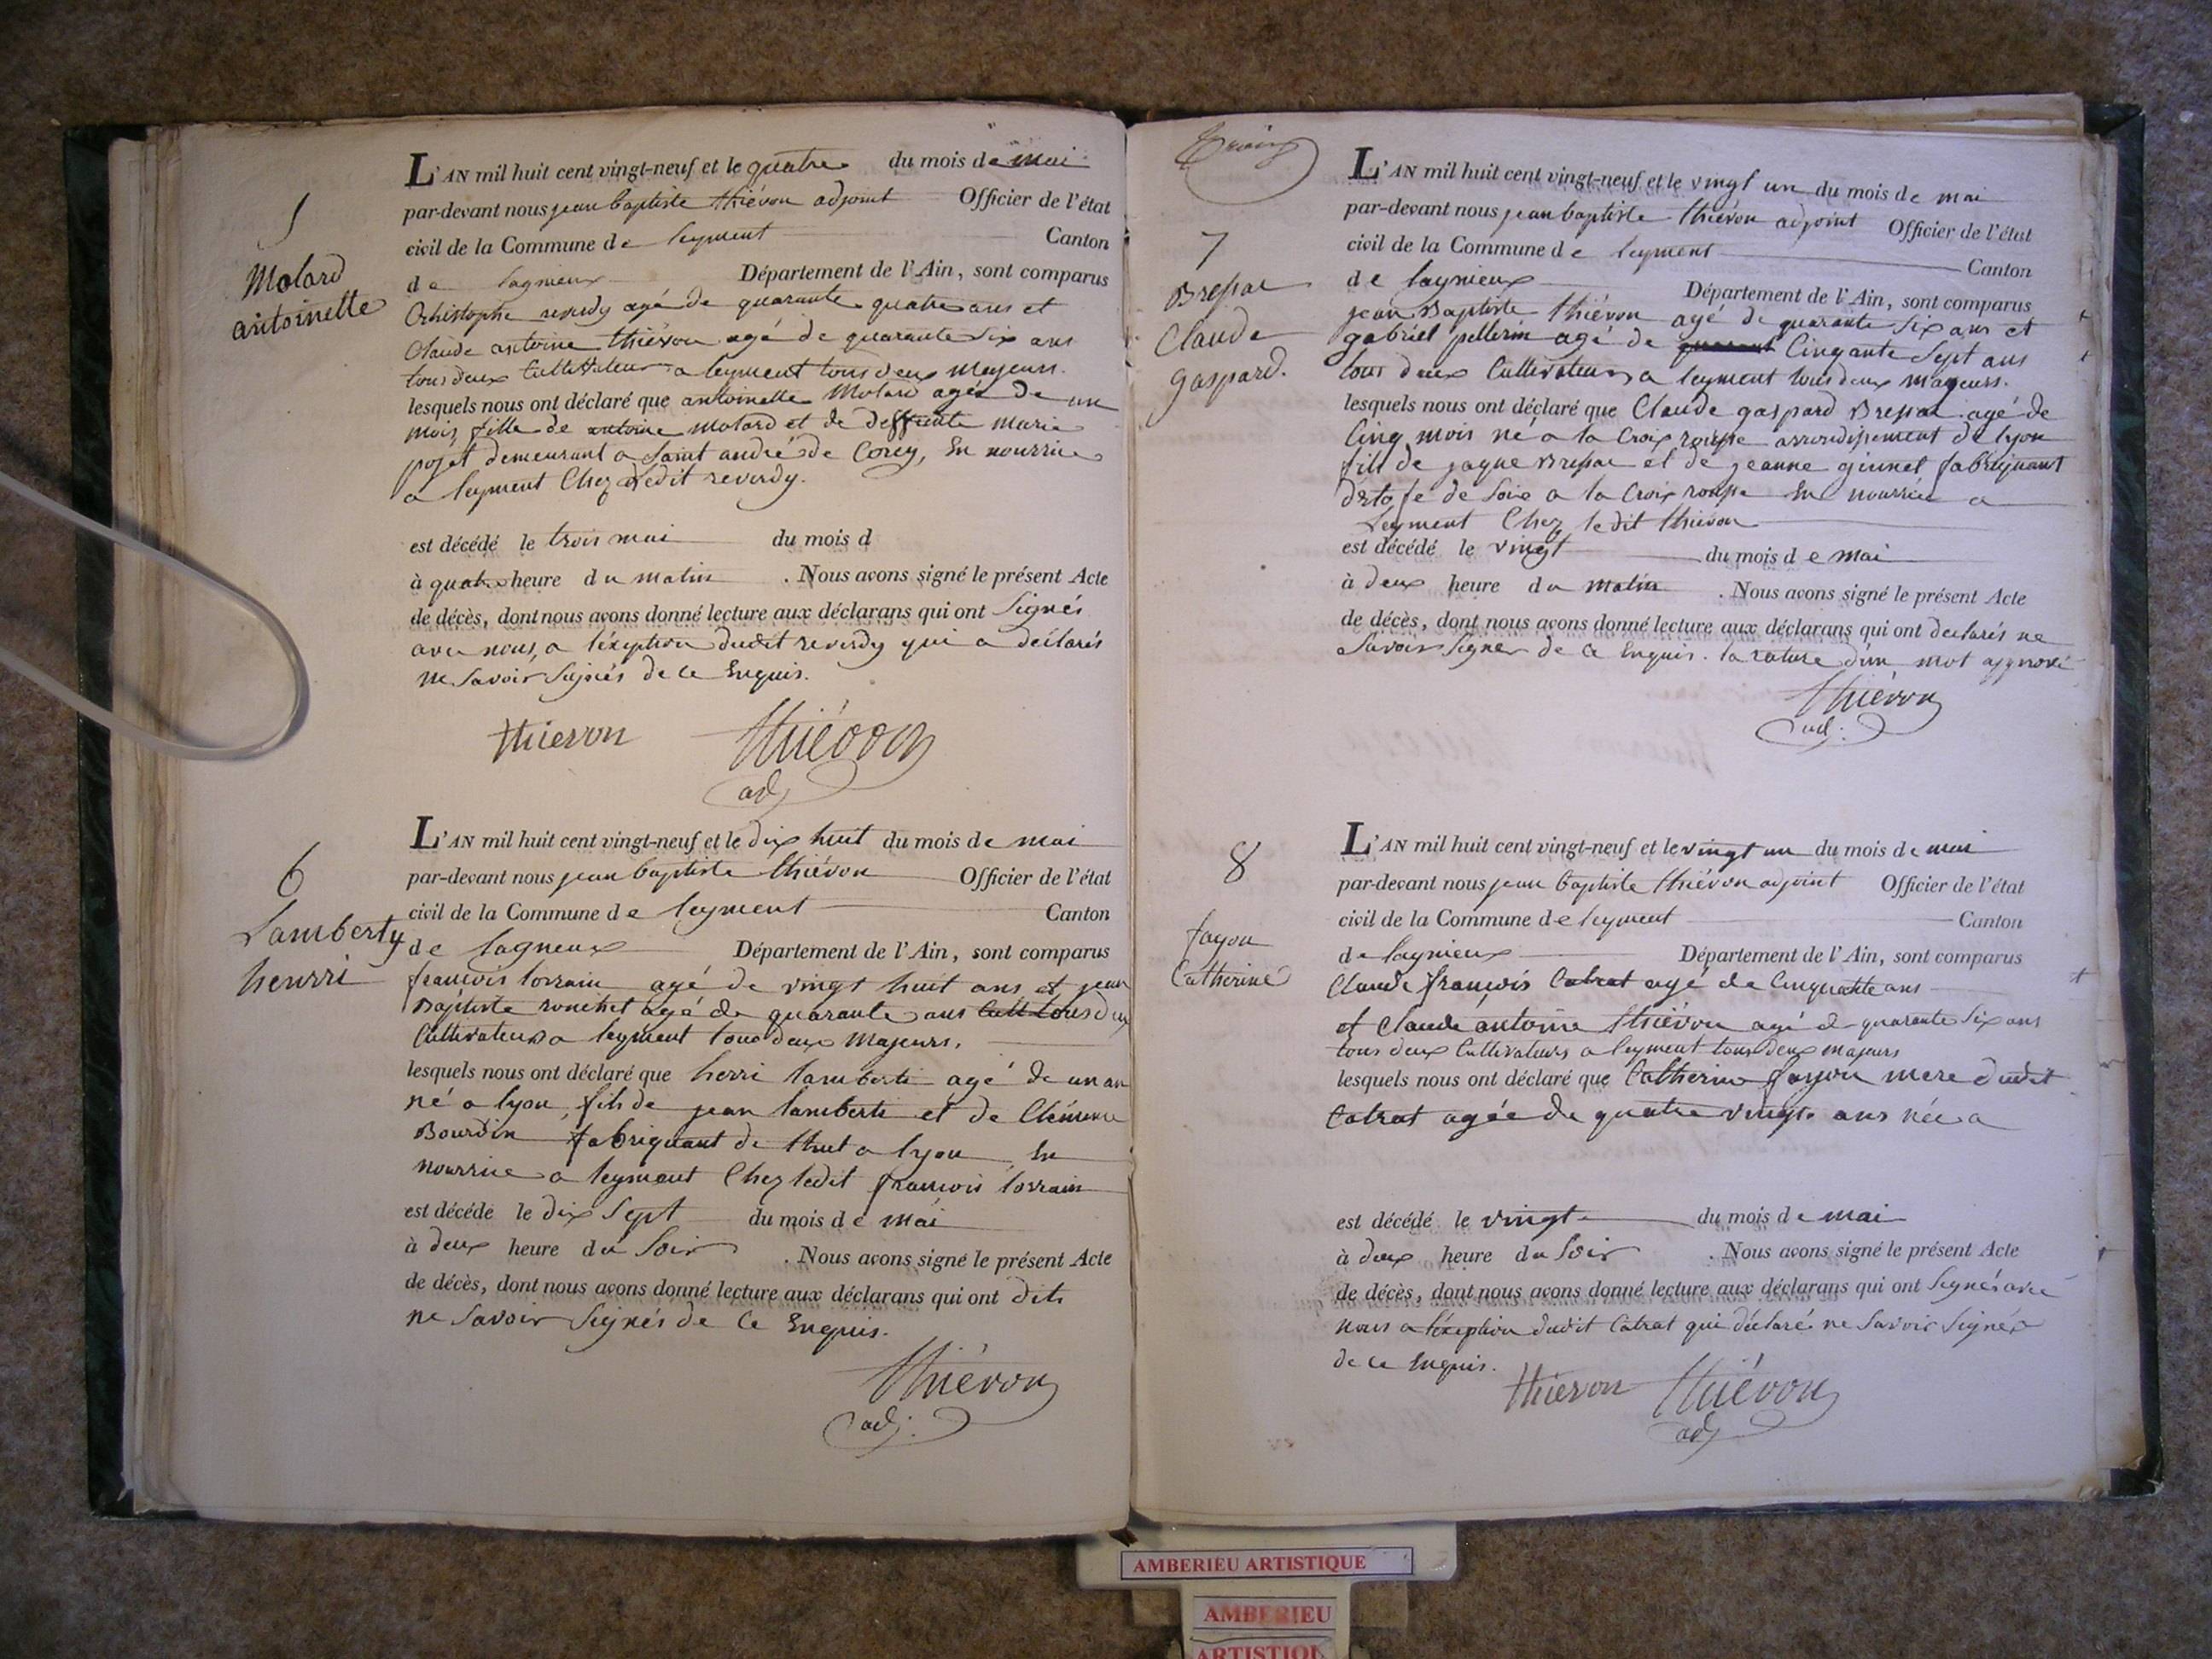 5
Molard
antoinette
L'AN mil huit cent vingt-neuf et le quatre du mois de mai
par-devant nous jean baptiste thiévon adjoint Officier de l'état
civil de la Commune de leyment Canton
de lagnieux Département de l'Ain, sont comparus
Christophe reverdy agé de quarante quatre ans et
Claude antoine thiévon agé de quarante six ans
tous deux Cultivateur a leyment tous deux majeurs.
lesquels nous ont déclaré que antoinette Molard agée de un
mois fille de antoine molard et de deffunte marie
pojet demeurant a saint andré de Corcy, En nourrice
a leyment Chez Ledit reverdy.
est décédé le trois mai du mois d
à quatre heure du matin . Nous avons signé le présent Acte
de décès, dont nous avons donné lecture aux déclarans qui ont signés
avec nous, a l'éxeption dudit reverdy qui a déclarés
ne savoir signés de ce Enquis.
thievon thiévon
adj
6
Lamberty
henrri
L'AN mil huit cent vingt-neuf et le dix huit du mois de mai
par-devant nous jean baptiste thiévon Officier de l'état
civil de la Commune de leyment Canton
de lagneux Département de l'Ain, sont comparus
francois lorrain agé de vingt huit ans et jean
Baptiste ronchet agé de quarante ans Cult tous deux
Cultivateurs a leyment tous deux majeurs.
lesquels nous ont déclaré que henri lamberti agé de un an
né a lyon, fils de jean lamberti et de Clémence
Bourdin fabriquant de a lyon En
nourrice a leyment Chez ledit francois lorrain
est décédé le dix sept du mois de mai
à deux heure du soir . Nous avons signé le présent Acte
de décès, dont nous avons donné lecture aux déclarans qui ont dits
ne savoir signés de ce Enquis.
thiévon
adj.
7
Bressac
Claude
gaspard.
L'AN mil huit cent vingt-neuf et le vingt un du mois de mai
par-devant nous jean baptiste thiévon adjoint Officier de l'état
civil de la Commune de leyment Canton
de lagnieux Département de l'Ain, sont comparus
jean Baptiste thiévon agé de quarante six ans et
gabriel pellerin agé de quarant Cinqante sept ans
tous deux Cultivateurs a leyment tous deux majeurs.
lesquels nous ont déclaré que Claude gaspard Bressac agé de
Cinq mois né a la Croix rousse arrondissement de lyon
fils de jaque Bressac et de jeanne fabriquant
détofe de soie a la Croix rousse En nourrice a
Leyment Chez ledit thiévon
est décédé le vingt du mois de mai
à deux heure du matin . Nous avons signé le présent Acte
de décès, dont nous avons donné lecture aux déclarans qui ont declarés ne
savoir signer de ce Enquis. la rature d'un mot apprové
thiévon
adj.
8
fayou
Catherine
L'AN mil huit cent vingt-neuf et le vingt un du mois de mai
par-devant nous jean baptiste thiévon adjoint Officier de l'état
civil de la Commune de leyment Canton
de lagnieux Département de l'Ain, sont comparus
Claude françois Catrat agé de Cinquante ans
et Claude antoine thiévon agé de quarante six ans
tous deux Cultivateurs a leyment tous deux majeurs
lesquels nous ont déclaré que Catherine fayou mere dudit
Catrat agée de quatre vingt ans née a
est décédé le vingt du mois de mai
à deux heure du soir . Nous avons signé le présent Acte
de décès, dont nous avons donné lecture aux déclarans qui ont signés avec
nous a l'éxeption dudit Catrat qui déclaré ne savoir signés
de ce Enquis.
thievon thiévon
adj
AMBERIEU ARTISTIQUE
AMBERIEU
ARTISTIQU